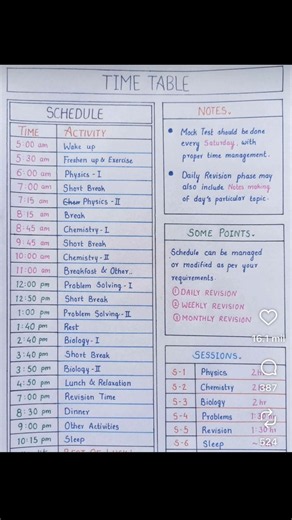 TIME TABLE
SCHEDULE
TIME ACTIVITY
5:00 am Wake up
5:30 am Freshen up & Exercise
6:00 am Physics - I
7:00 am Short Break
7:15 am Physics - II
8:15 am Break
8:45 am Chemistry - I
9:45 am Short Break
10:00 am Chemistry - II
11:00 am Breakfast & Other
12:00 pm Problem Solving - I
12:50 pm Short Break
1:00 pm Problem Solving - II
1:40 pm Rest
2:40 pm Biology - I
3:40 pm Short Break
3:50 pm Biology - II
4:50 pm Lunch & Relaxation
7:00 pm Revision Time
8:30 pm Dinner
9:00 pm Other Activities
10:15 pm Sleep
NOTES.
• Mock Test should be done
every Saturday, with
proper time management.
• Daily Revision phase may
also include Notes making
of day's particular topic.
SOME POINTS.
Schedule can be managed
or modified as per your
requirements.
① DAILY REVISION
② WEEKLY REVISION
③ MONTHLY REVISION
16.1 mil
SESSIONS.
S-1 Physics 2 hr
S-2 Chemistry 2
387
S-3 Biology 2 hr
S-4 Problems 1:30 hr
S-5 Revision 1:30 hr
624
S-6 Sleep ~